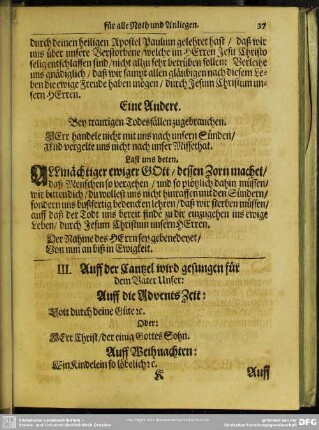 für alle Noth und Anliegen. 37
durch deinen heiligen Apostel Paulum gelehret hast / daß wir
uns über unsere Verstorbene / welche im HErren Jesu Christo
selig entschlaffen sind / nicht allzu sehr betrüben sollen: Verleihe
uns gnädiglich / daß wir sampt allen gläubigen nach diesem Le-
ben die ewige Freude haben mögen / durch Jesum Christum un-
sern HErren.
Eine Andere.
Bey traurigen Todesfällen zugebrauchen.
HErr handele nicht mit uns nach unsern Sünden /
Und vergelte uns nicht nach unser Missethat.
Last uns beten.
ALlmächtiger ewiger GOtt / dessen Zorn machet /
daß Menschen so vergehen / und so plötzlich dahin müssen /
wir bitten dich / du wollest uns nicht hinraffen mit den Sündern /
sondern uns bußfertig bedencken lehren / daß wir sterben müssen /
auff daß der Todt uns bereit finde zu dir einzugehen ins ewige
Leben / durch Jesum Christum unsern HErren.
Der Nahme des HErrn sey gebenedeyet /
Von nun an biß in Ewigkeit.
III. Auff der Cantzel wird gesungen für
dem Vater Unser:
Auff die Advents Zeit:
Gott durch deine Güte ꝛc.
Oder:
HErr Christ / der einig Gottes Sohn.
Auff Weihnachten:
Ein Kindelein so löbelich ꝛc.
K Auff